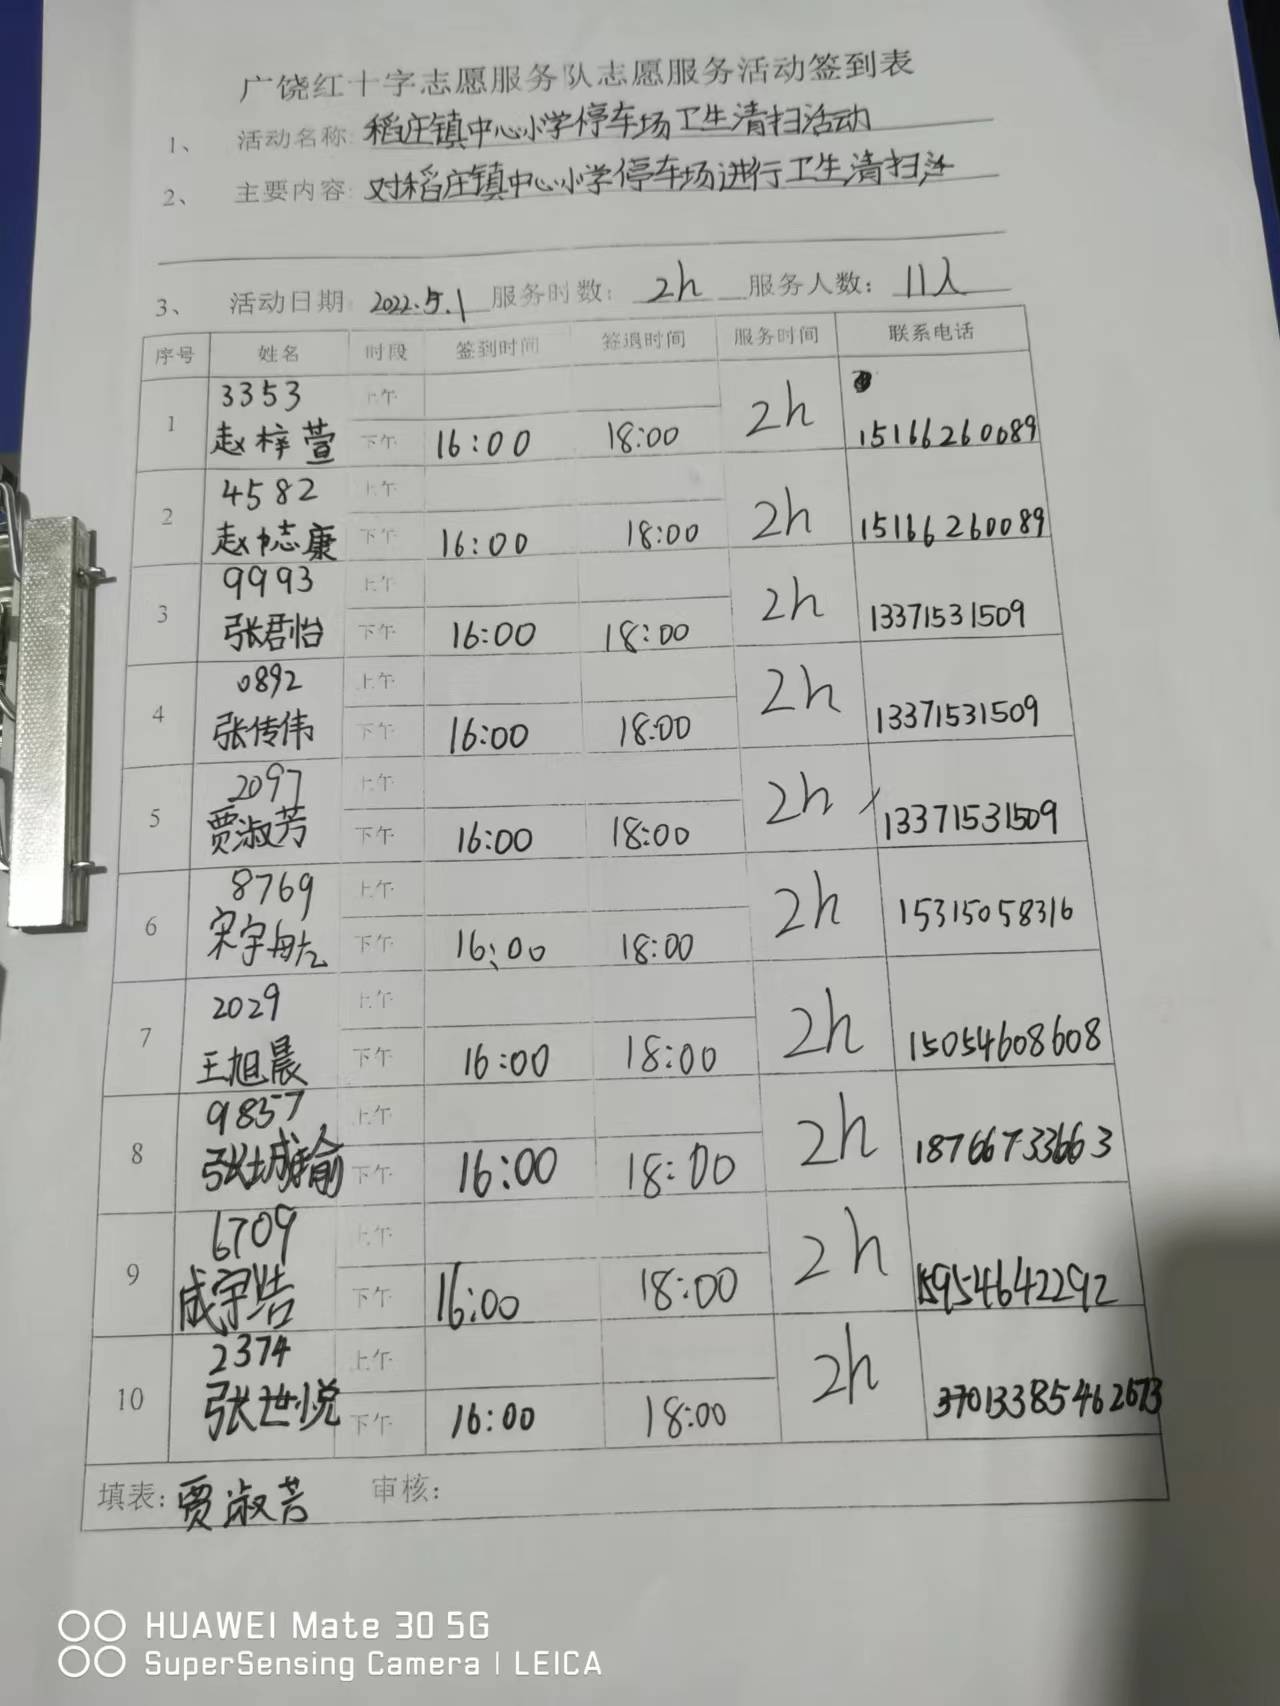 广饶红十字志愿服务队志愿服务活动签到表
1、 活动名称: 稻庄镇中心小学停车场卫生清扫活动
2、 主要内容: 对稻庄镇中心小学停车场进行卫生清扫
3、 活动日期: 2022.5.1 服务时数: 2h 服务人数: 11人
序号 姓名 时段 签到时间 签退时间 服务时间 联系电话
1 3353 赵梓萱 上午
下午 16:00 18:00 2h 15166260089
2 4582 赵志康 上午
下午 16:00 18:00 2h 15166260089
3 9993 张君怡 上午
下午 16:00 18:00 2h 13371531509
4 0892 张传伟 上午
下午 16:00 18:00 2h 13371531509
5 2097 贾淑芳 上午
下午 16:00 18:00 2h 13371531509
6 8769 宋宇航 上午
下午 16:00 18:00 2h 15315058316
7 2029 王旭晨 上午
下午 16:00 18:00 2h 15054608608
8 9857 张城瑜 上午
下午 16:00 18:00 2h 18766733663
9 6709 成宇浩 上午
下午 16:00 18:00 2h 15954642292
10 2374 张世悦 上午
下午 16:00 18:00 2h
填表: 贾淑芳 审核:
HUAWEI Mate 30 5G
SuperSensing Camera | LEICA